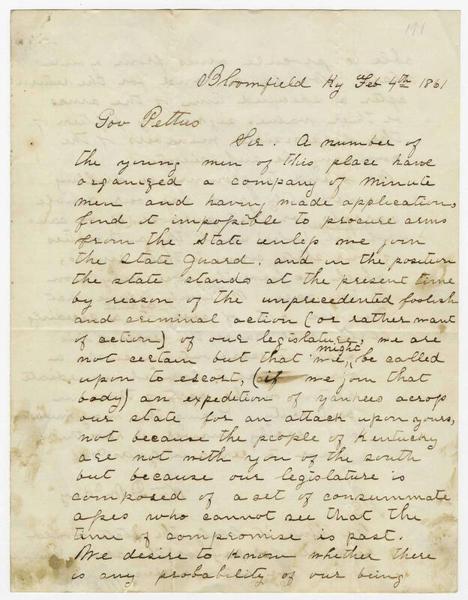 191
Bloomfield Ky Feb 4th 1861
Gov Pettus
Sir. A number of
the young men of this place have
organized a company of minute
men and having made application,
find it impossible to procure arms
from the State unless we join
the State Guard. and in the position
the state stands at the present time
by reason of the unprecedented foolish
and criminal action (or rather want
of action) of our legislature, we are
not certain but that we might be called
upon to escort, (if we join that
body) an expedition of yankees across
our state for an attack upon yours,
not because the people of Kentucky
are not with you of the south
but because our legislature is
composed of a set of consummate
asses who cannot see that the
time of compromise is past.
We desire to know whether there
is any probability of our being